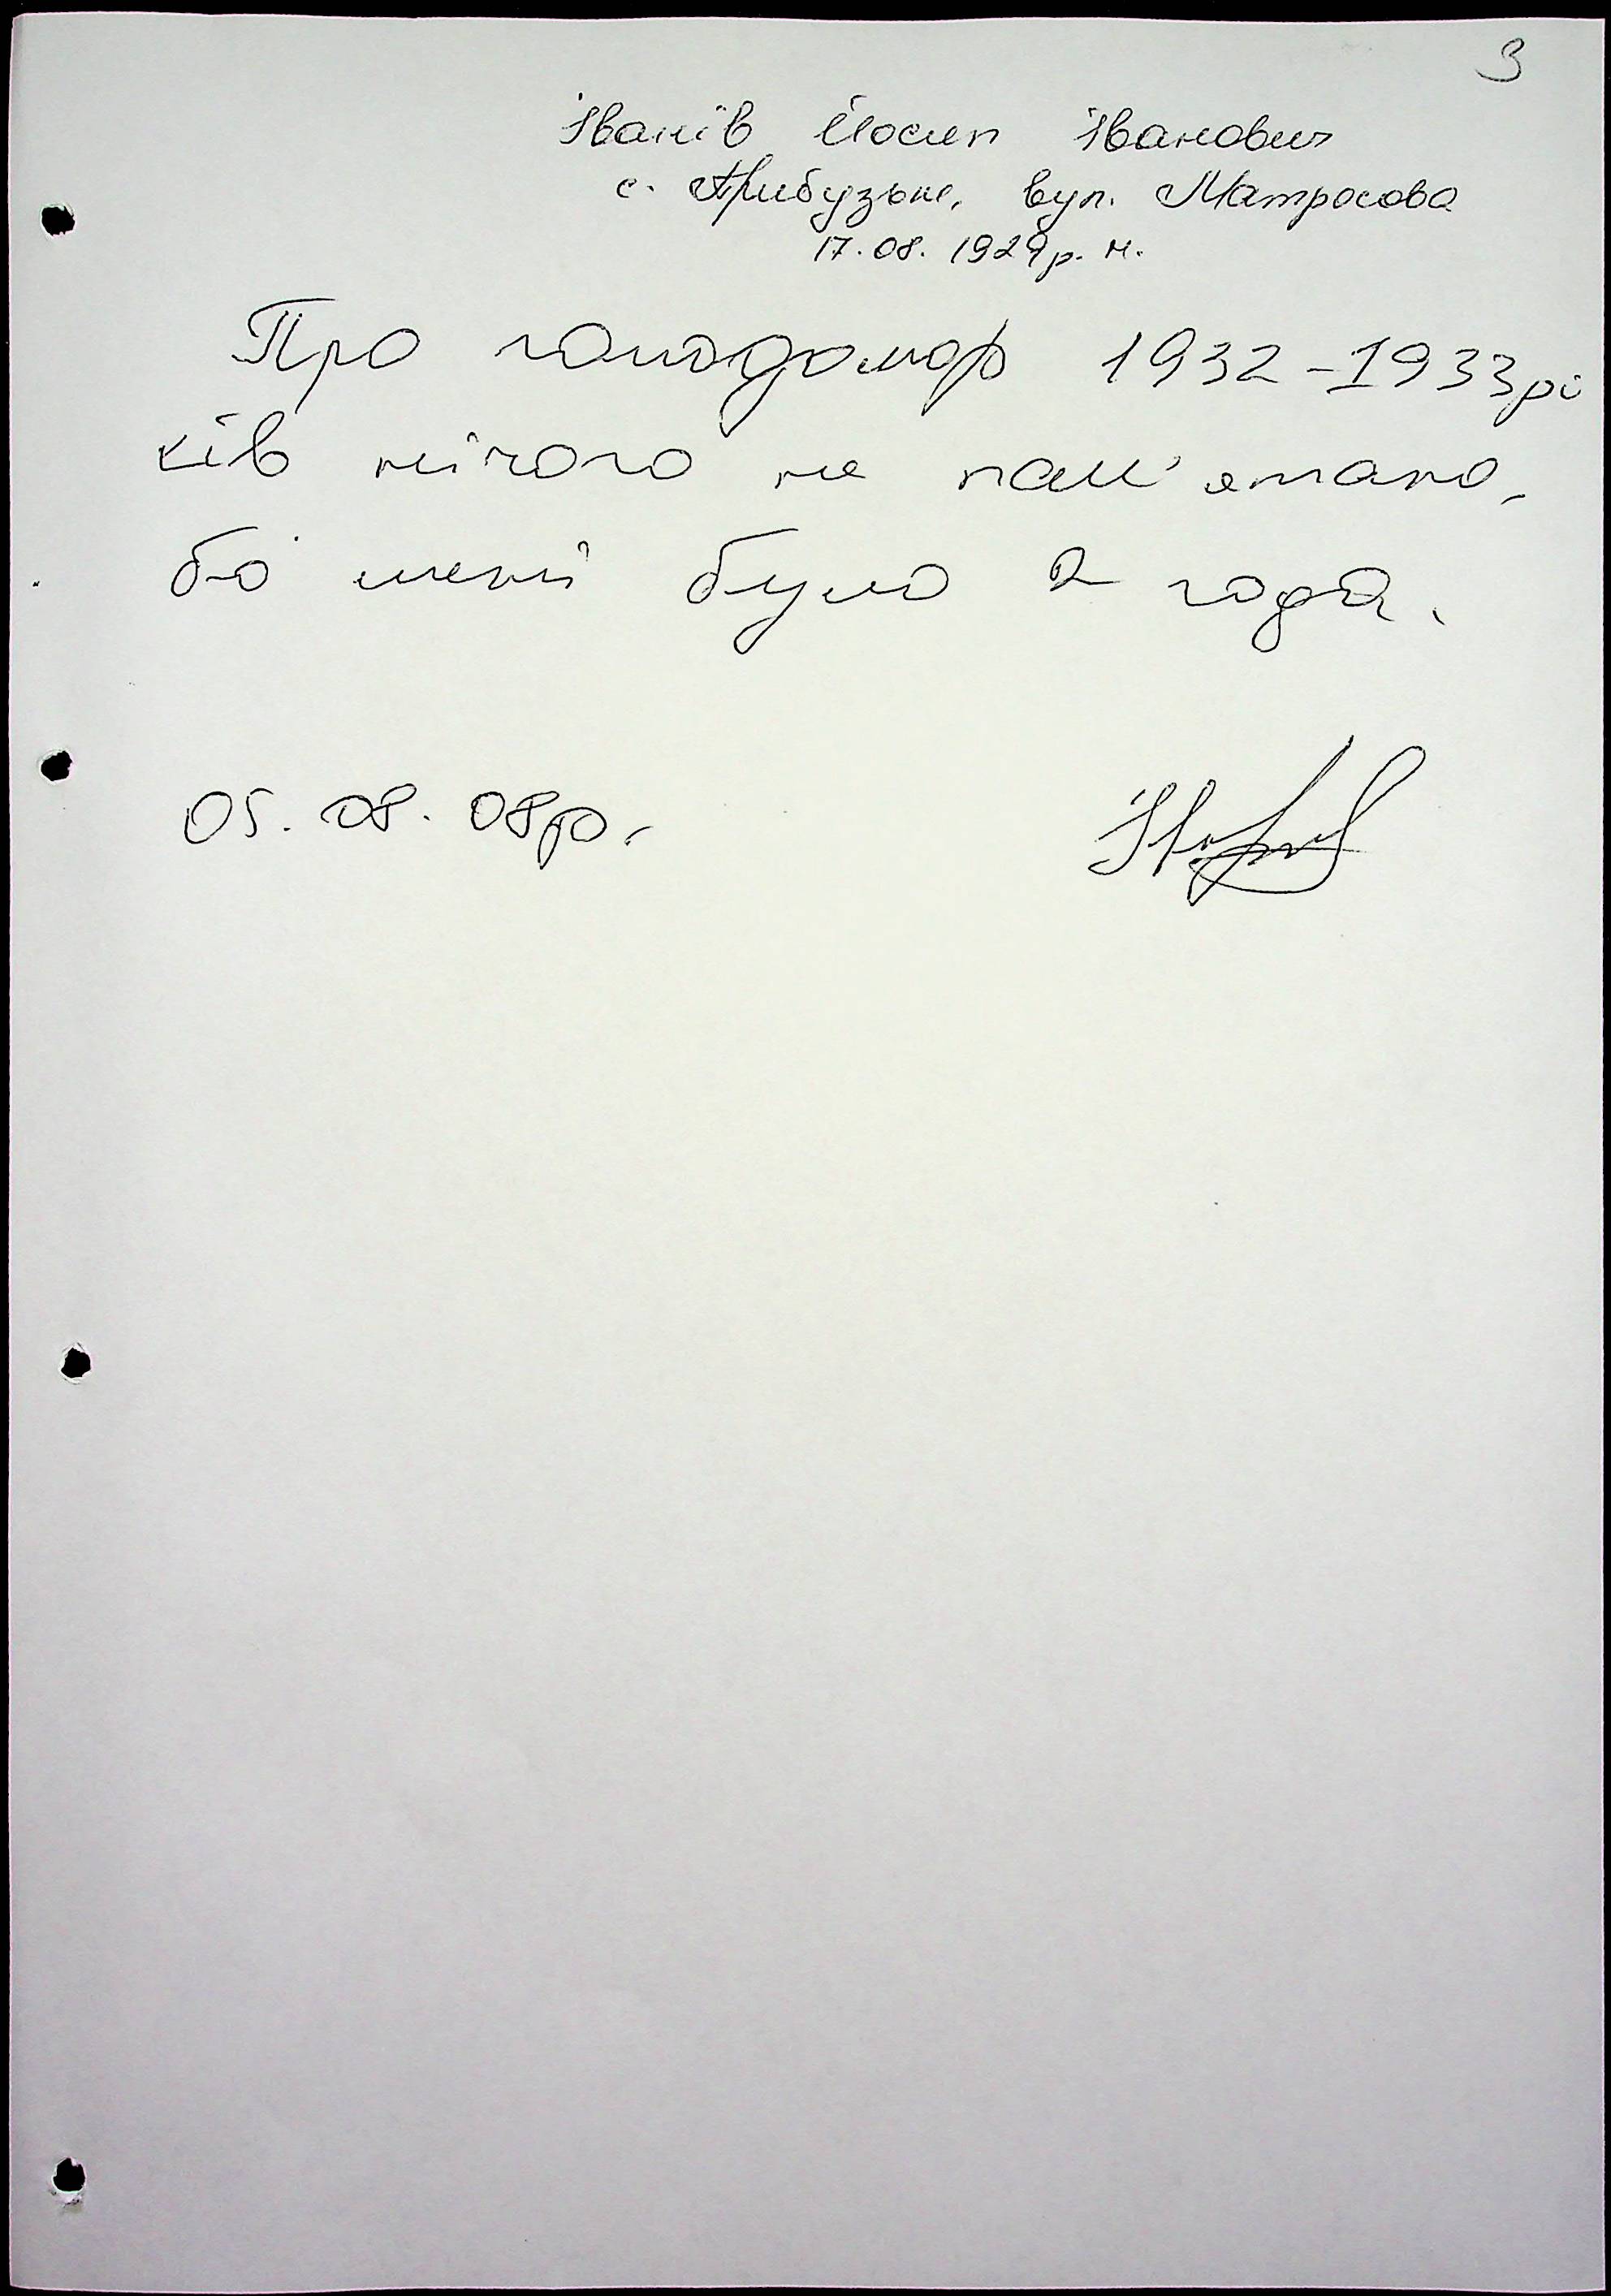 3
Іванів Йосип Іванович
с. Прибузьке, вул. Матросова
17.08.1929 р. н.
Про голодомор 1932-1933 рі
ків нічого не пам'ятаю,
бо мені було 2 года.
05.08.08р.